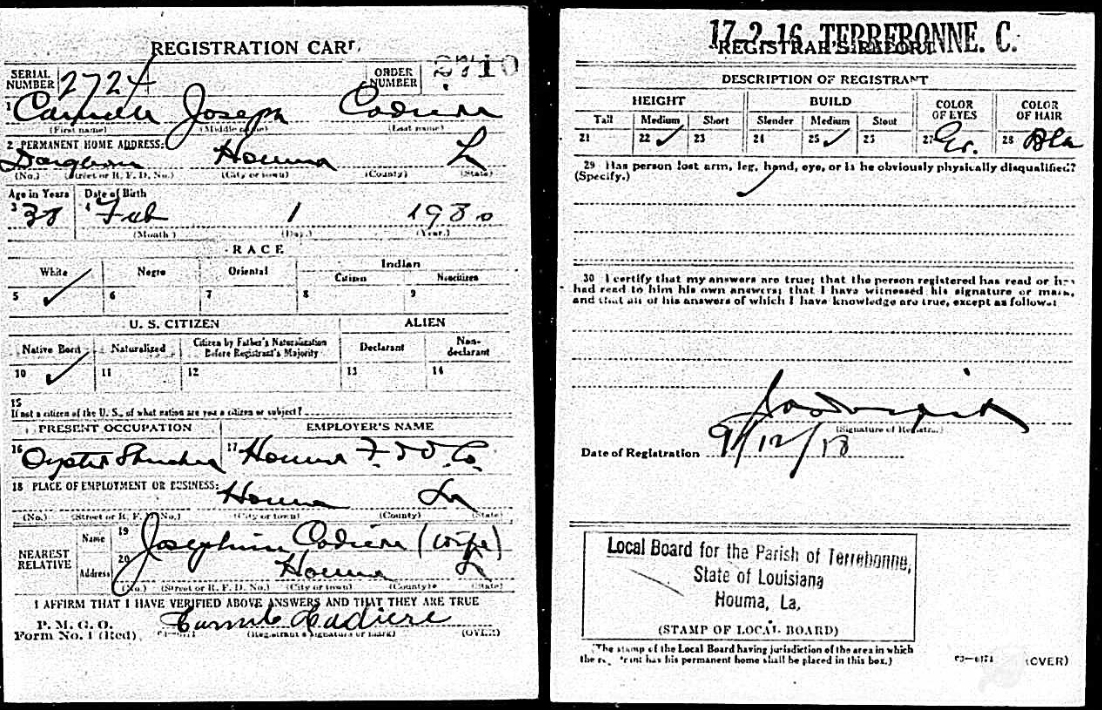 REGISTRATION CARD
SERIAL NUMBER 2724 ORDER NUMBER
1 Camille Joseph Cadiere
(First name) (Middle name) (Last name)
2 PERMANENT HOME ADDRESS:
Houma La
(No.) (Street or R. F. D. No.) (City or town) (County) (State)
Age in Years Date of Birth
3 38 4 Feb 1 1880
(Month) (Day.) (Year.)
RACE
White Negro Oriental Indian
Citizen Noncitizen
5 ✓ 6 7 8 9
U. S. CITIZEN ALIEN
Native Born Naturalized Citizen by Father's Naturalization Before Registrant's Majority Declarant Non-declarant
10 ✓ 11 12 13 14
15
If not a citizen of the U. S., of what nation are you a citizen or subject?
PRESENT OCCUPATION EMPLOYER'S NAME
16 Oyster Shucker 17 Houma F. & O. Co.
18 PLACE OF EMPLOYMENT OR BUSINESS:
Houma La
(No.) (Street or R. F. D. No.) (City or town) (County) (State)
NEAREST RELATIVE
Name 19 Josephine Cadiere (wife)
Address 20 Houma La
(No.) (Street or R. F. D. No.) (City or town) (County) (State)
I AFFIRM THAT I HAVE VERIFIED ABOVE ANSWERS AND THAT THEY ARE TRUE
P. M. G. O.
Form No. 1 (Red) Camile Cadiere
(Registrant's signature or mark) (OVER)
17-2-16 TERREBONNE. C.
REGISTRAR'S REPORT
DESCRIPTION OF REGISTRANT
HEIGHT BUILD COLOR OF EYES COLOR OF HAIR
Tall Medium Short Slender Medium Stout
21 22 ✓ 23 24 25 ✓ 26 27 Gr. 28 Bla
29 Has person lost arm, leg, hand, eye, or is he obviously physically disqualified?
(Specify.)
30 I certify that my answers are true; that the person registered has read or has
had read to him his own answers; that I have witnessed his signature or mark,
and that all of his answers of which I have knowledge are true, except as follows:
(Signature of Registrar)
Date of Registration 9/12/18
Local Board for the Parish of Terrebonne,
State of Louisiana
Houma, La,
(STAMP OF LOCAL BOARD)
(The stamp of the Local Board having jurisdiction of the area in which
the registrant has his permanent home shall be placed in this box.)
03—6171 (OVER)